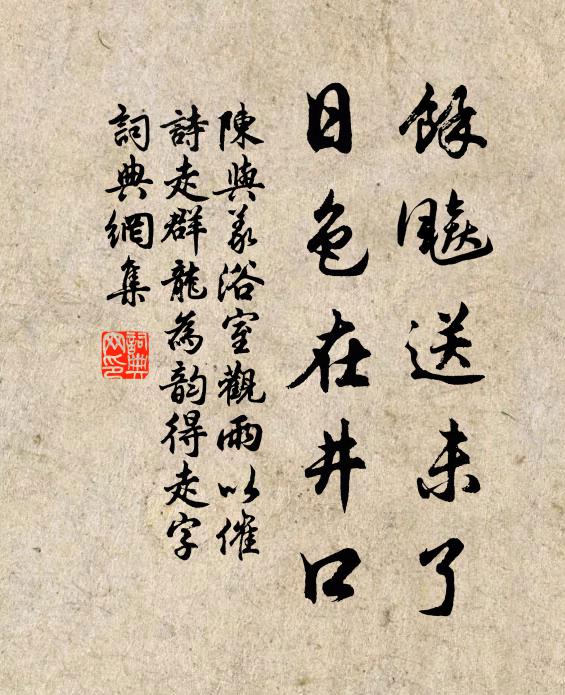 餘飈送未了
日色在井口
陳與義浴室觀雨以催
詩走群龍為韵得走字
詞典網集
詞典
网印